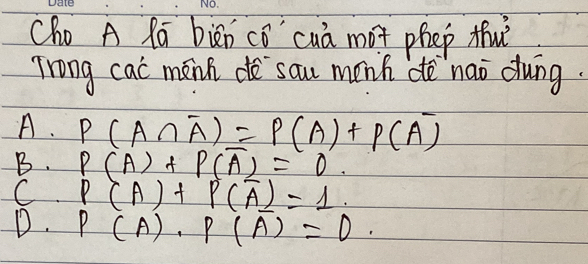 Date No.
Cho A là biến cố của một phép thử
Trong các mệnh đề sau mệnh đề nào đúng.
A. P(A∩Ā) = P(A) + P(Ā)
B. P(A) + P(Ā) = 0.
C. P(A) + P(Ā) = 1.
D. P(A). P(Ā) = 0.